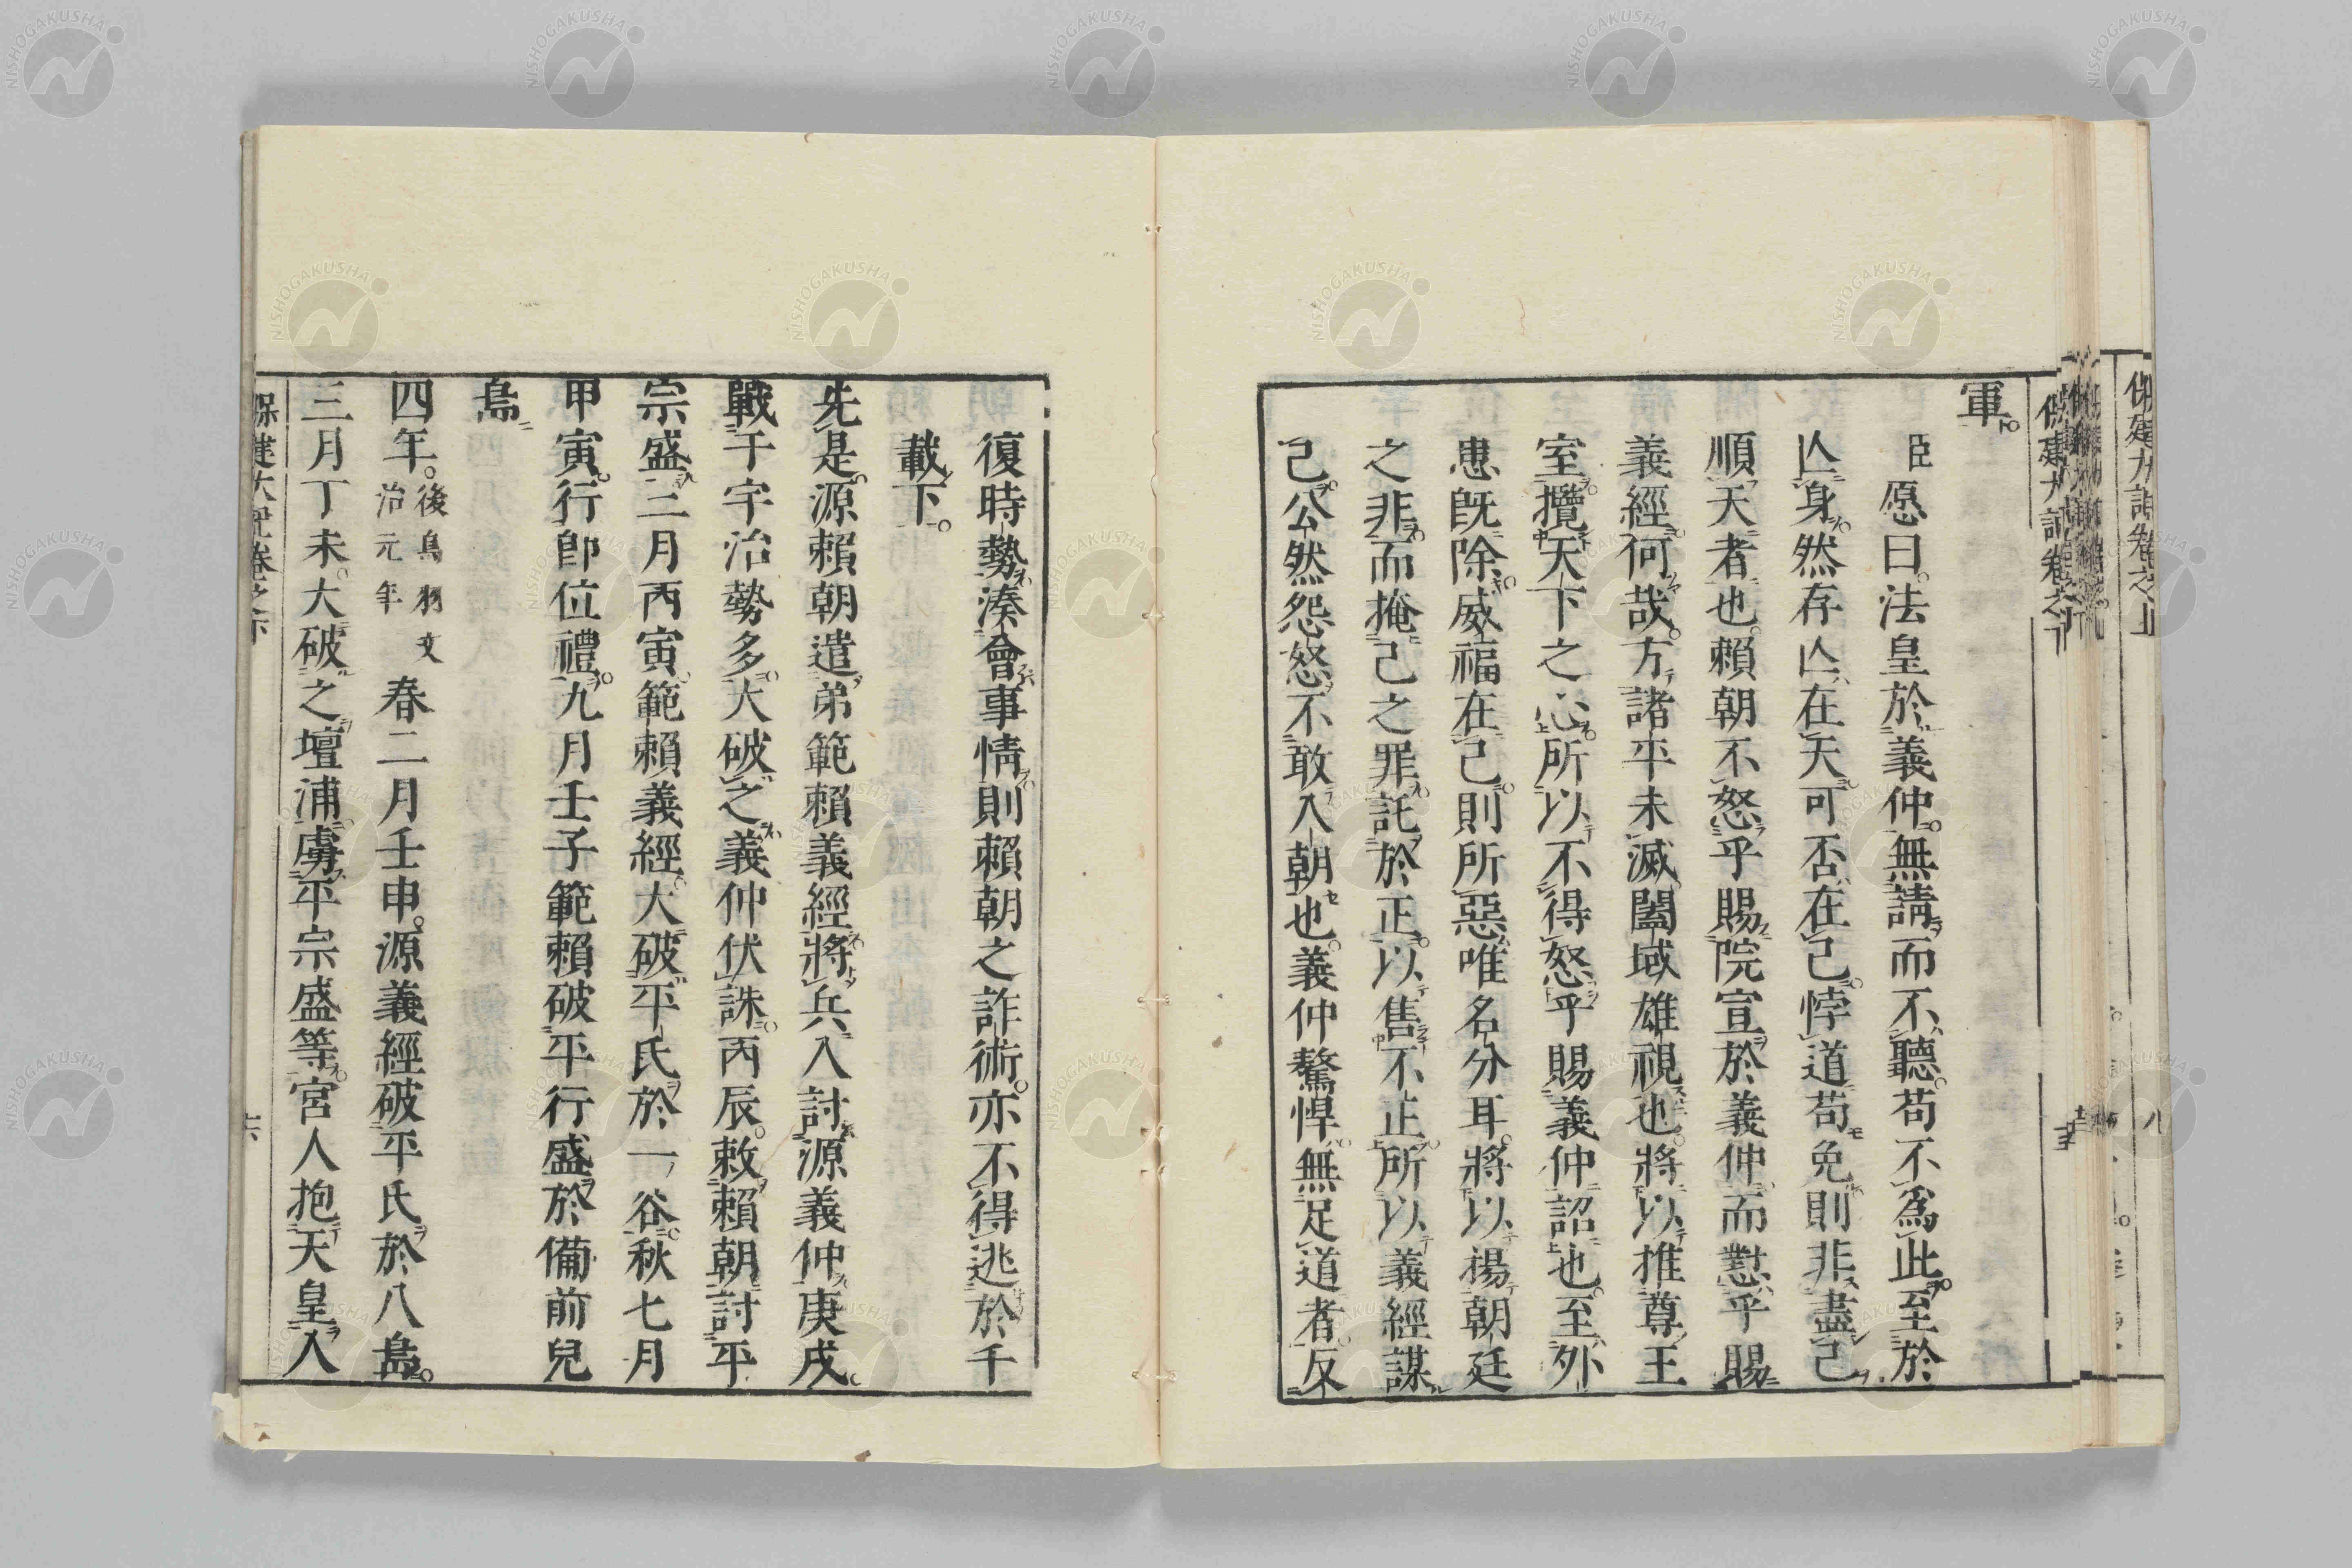 軍
臣愿曰法皇於義仲無請而不聽苟不爲此至於
亾身然存亾在天可否在己悖道苟免則非盡己
順天者也賴朝不怒乎賜院宣於義仲而懟乎賜
義經何哉方諸平未滅闔域雄視也將以推尊王
室攬天下之心所以不得怒乎賜義仲詔也至外
患既除威福在己則所惡唯名分耳將以揚朝廷
之非而掩己之罪託於正以售不正所以以義經謀
己公然怨怒不敢入朝也義仲驁悍無足道者反
復時勢湊會事情則賴朝之詐術亦不得逃於千
載下
先是源賴朝遣弟範賴義經將兵入討源義仲庚戌
戰于宇治勢多大破之義仲伏誅丙辰敕賴朝討平
宗盛二月丙寅範賴義經大破平氏於一谷秋七月
甲寅行卽位禮九月壬子範賴破平行盛於備前兒
島
四年後鳥羽文治元年春二月壬申源義經破平氏於八島
三月丁未大破之壇浦虜平宗盛等宮人抱天皇入
保建大記卷之下
六
NISHOGAKUSHA